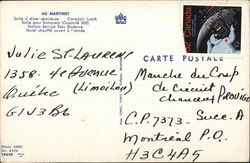 AU MARTINET
Salle à dîner spacieuse Comptoir Lunch
Salle pour banquets (Capacité 300)
Station Service Esso Moderne
Motel chauffé ouvert à l'année
Canada
CARTE POSTALE
Julie St-Laurent
1358 - 4e Avenue
Québec (Limoilou)
G1J3B6
Manche du Coup
de Circuit
chanceux PROVIGO
C.P. 7373 - Succ. A
Montréal P.Q.
H3C4A5